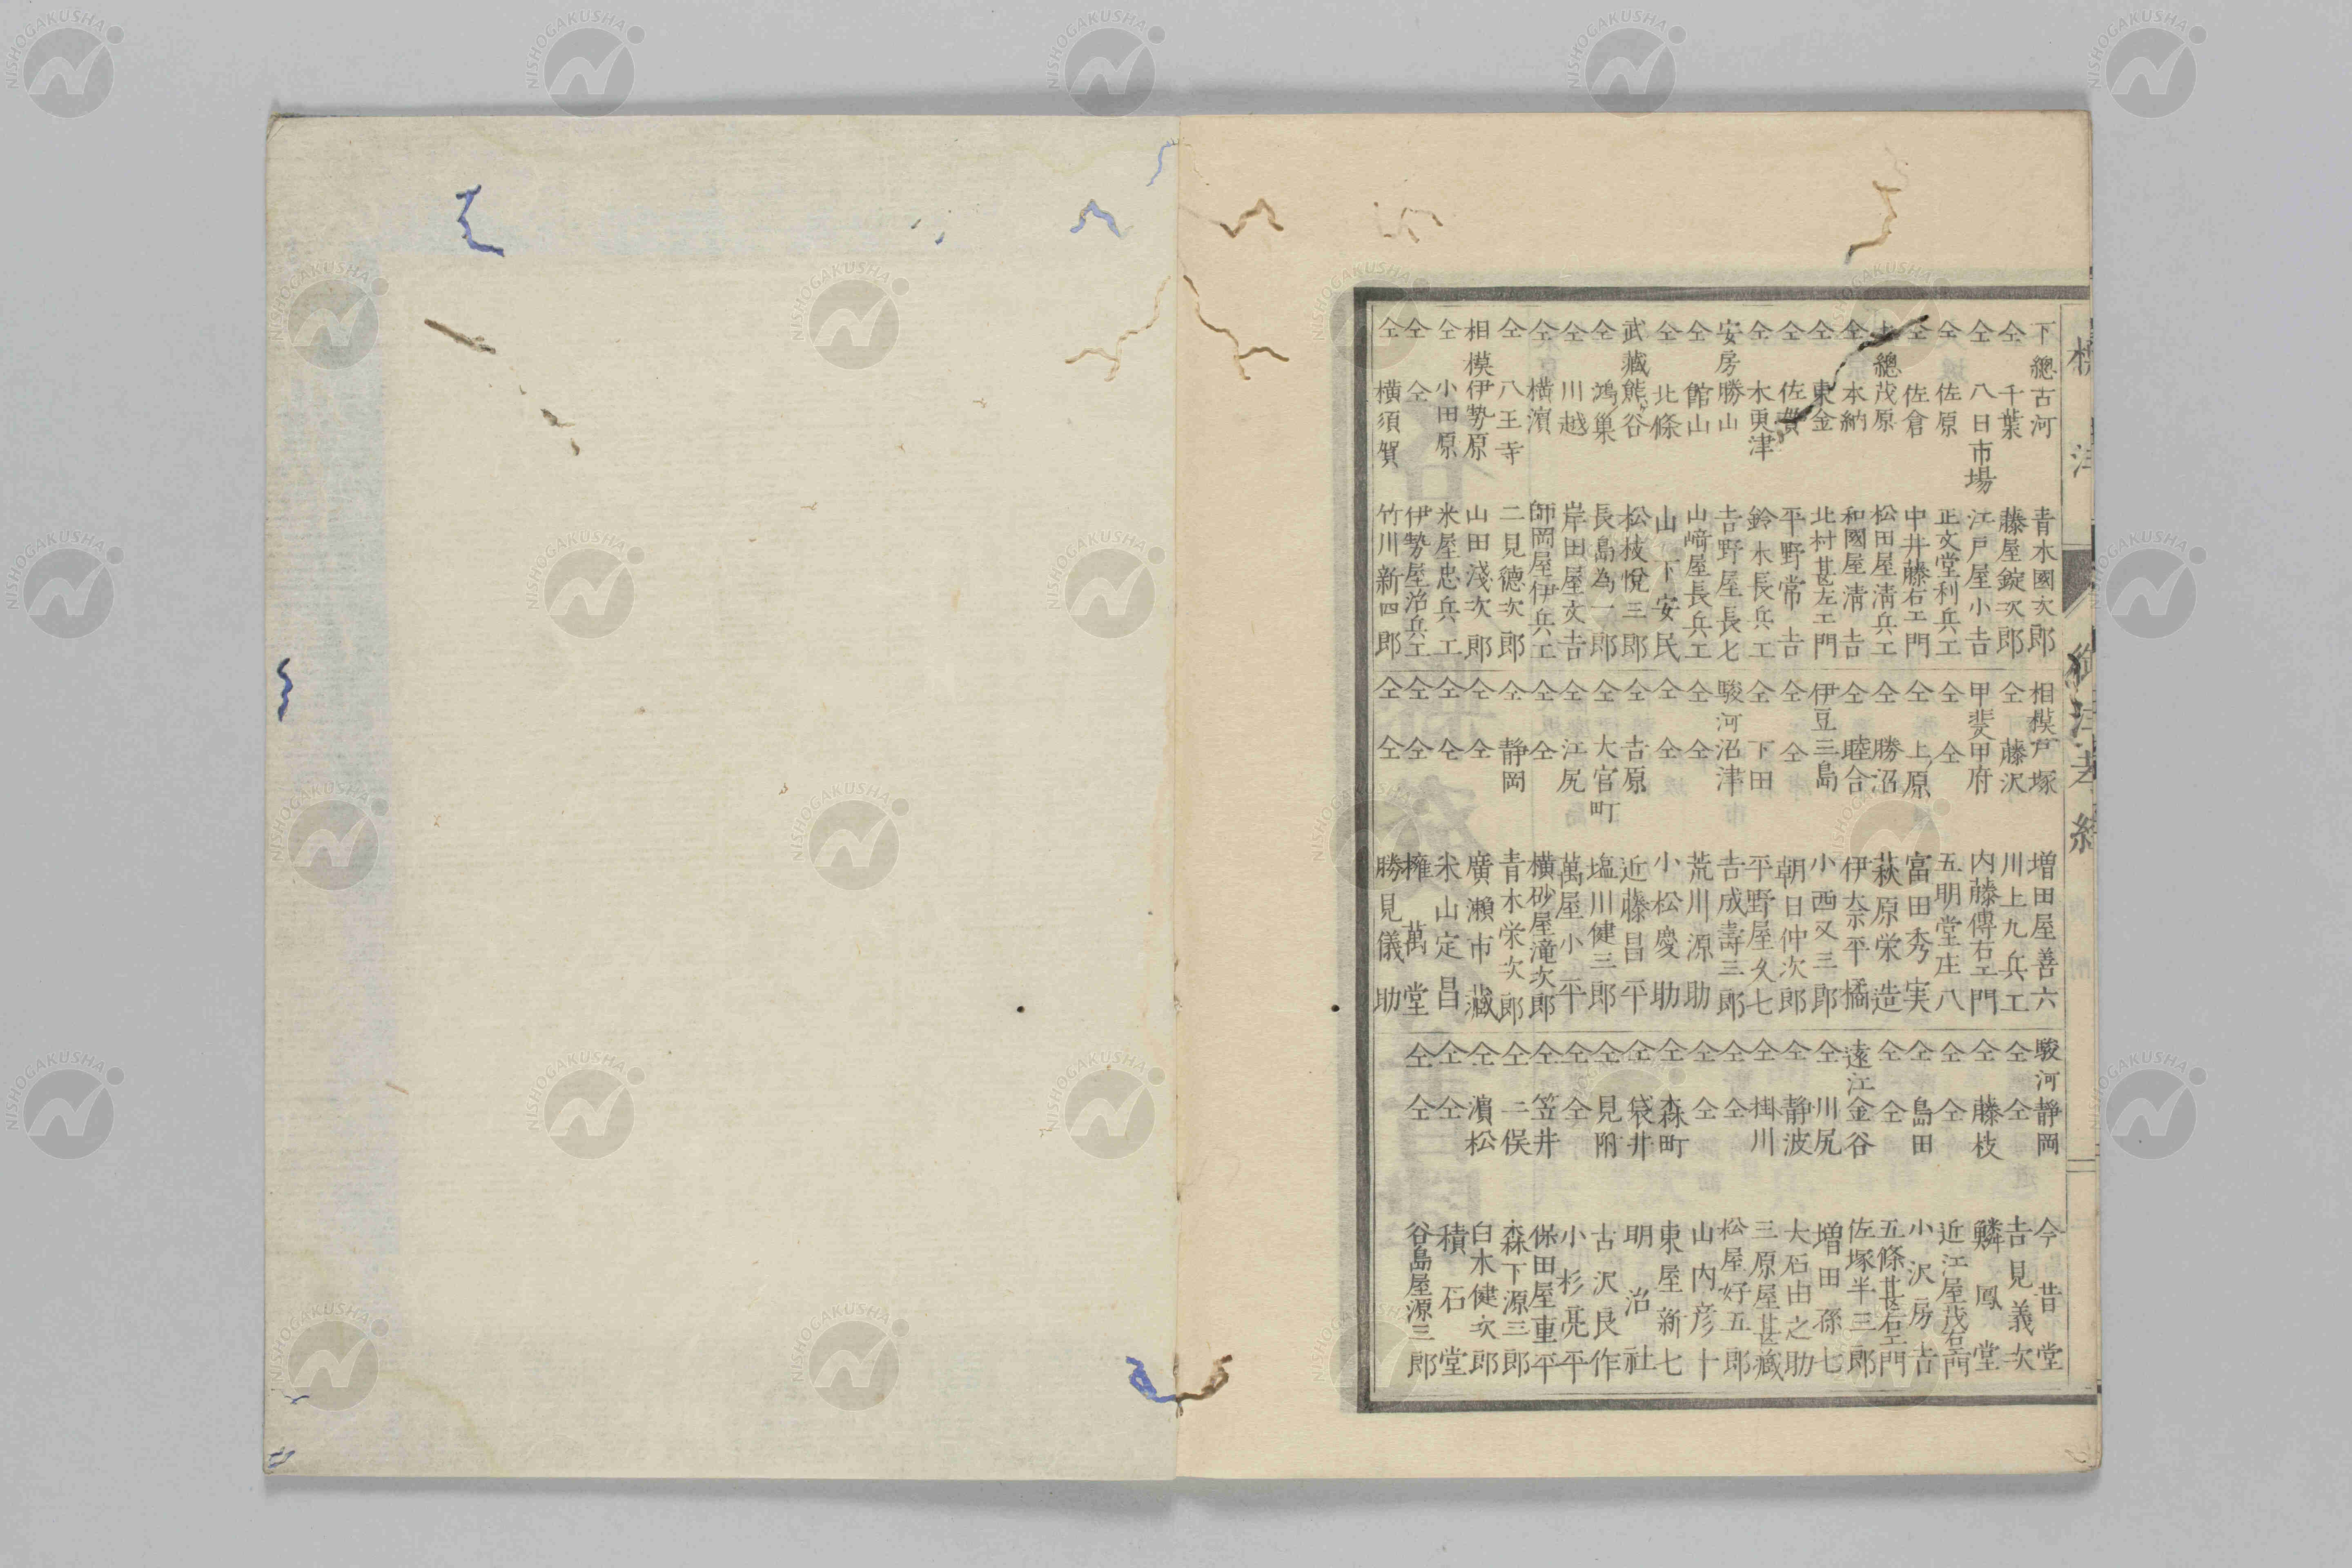 下總古河 青木國次郎
仝 千葉 藤屋錠次郎
仝 八日市場 江戸屋小吉
仝 佐原 正文堂利兵工
仝 佐倉 中井藤右工門
上總茂原 松田屋淸兵工
仝 本納 和國屋淸吉
仝 東金 北村甚左工門
仝 佐貫 平野常吉
仝 木更津 鈴木長兵工
安房勝山 吉野屋長七
仝 館山 山﨑屋長兵工
仝 北條 山下安民
武藏熊谷 松枝悅三郎
仝 鴻巢 長島為一郎
仝 川越 岸田屋文吉
仝 橫濵 師岡屋伊兵工
仝 八王寺 二見徳次郎
相模伊勢原 山田淺次郎
仝 小田原 米屋忠兵工
仝 仝 伊勢屋治兵工
仝 橫須賀 竹川新四郎
相模戸塚 増田屋善六
仝 藤沢 川上九兵工
甲斐甲府 内藤傳右工門
仝 仝 五明堂庄八
仝 上原 富田秀実
仝 勝沼 萩原栄造
仝 睦合 伊奈平橘
伊豆三島 小西又三郎
仝 仝 朝日仲次郎
仝 下田 平野屋久七
駿河沼津 吉成壽三郎
仝 仝 荒川源助
仝 仝 小松慶助
仝 吉原 近藤昌平
仝 大宮町 塩川健三郎
仝 江尻 萬屋小平
仝 仝 橫砂屋滝次郎
仝 静岡 青木栄次郎
仝 仝 廣瀬市藏
仝 仝 米山定昌
仝 仝 擁萬堂
仝 仝 勝見儀助
駿河静岡 今昔堂
仝 仝 吉見義次
仝 藤枝 鱗鳳堂
仝 仝 近江屋茂右工門
仝 島田 小沢房吉
仝 仝 五條甚右工門
遠江金谷 佐塚半三郎
仝 川尻 増田孫七
仝 静波 大石由之助
仝 掛川 三原屋甚藏
仝 仝 松屋好五郎
仝 仝 山内彦十
仝 森町 東屋新七
仝 袋井 明治社
仝 見附 古沢良作
仝 仝 小杉亮平
仝 笠井 保田屋重平
仝 二俣 森下源三郎
仝 濵松 白木健次郎
仝 仝 積石堂
仝 仝 谷島屋源三郎
NISHOGAKUSHA